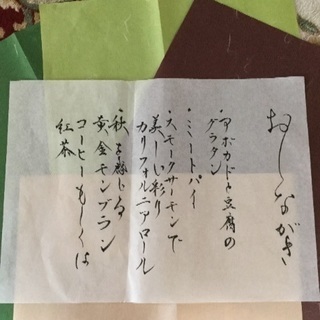 おしながき
・アボカドと豆腐の
グラタン
・ミートパイ
・スモークサーモンで
美しい彩り
カリフォルニアロール
・秋を感じる
黄金モンブラン
コーヒーもしくは
紅茶